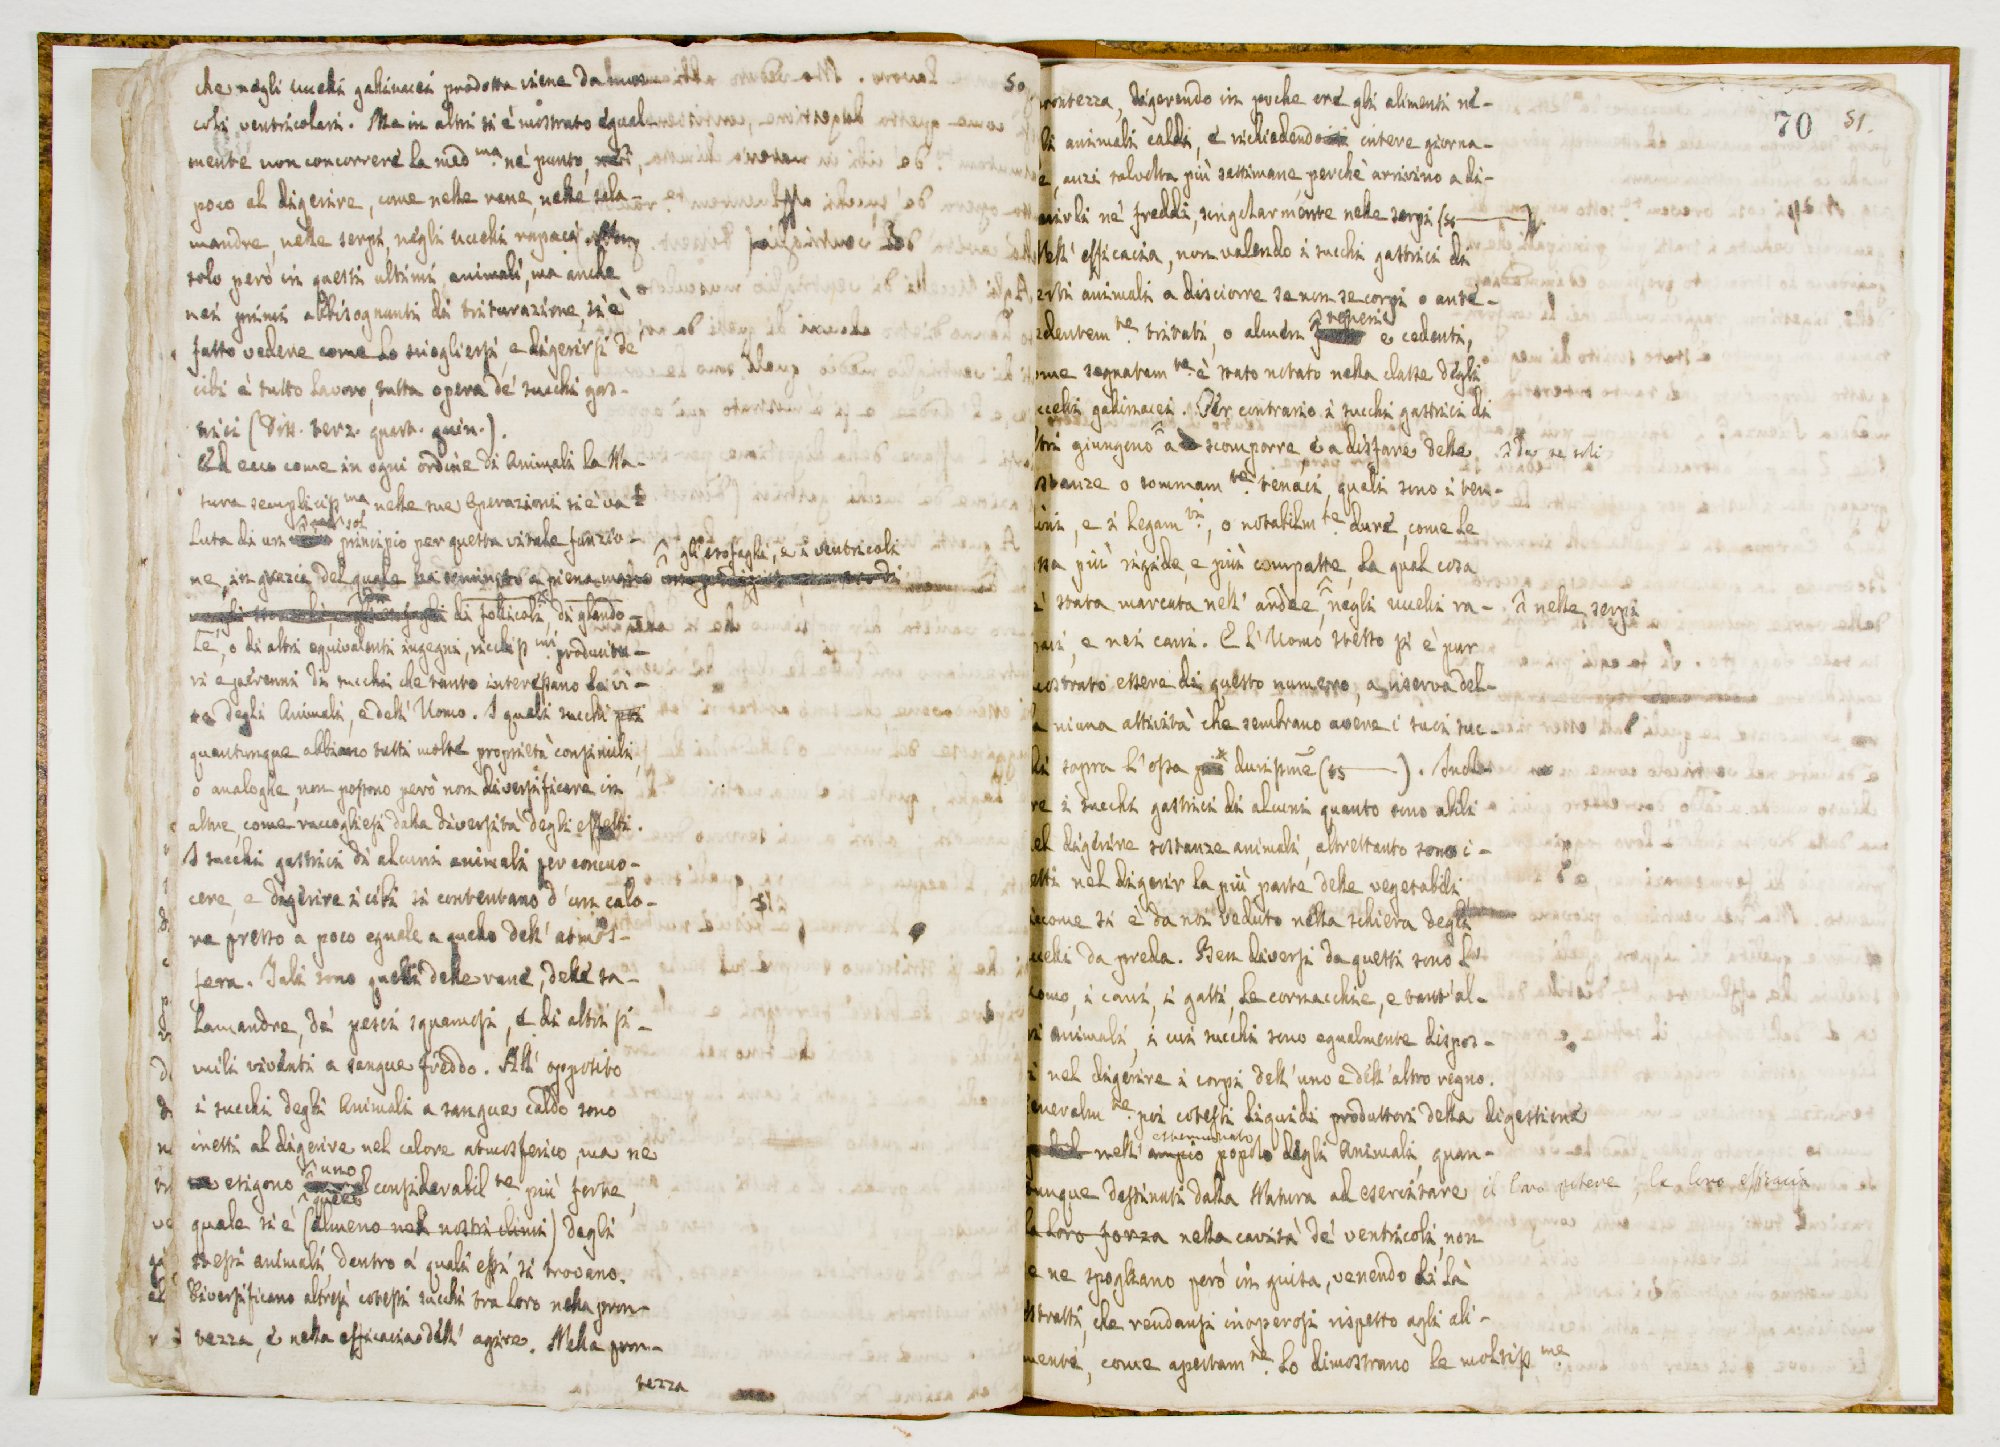 50
che negli uccelli gallinacei prodotta viene da mus-
coli ventricolari. Ma in altri si è mostrato egual-
mente non concorrere la med.ma nè punto, nè
poco al digerire, come nelle rane, nelle sala-
mandre, nelle serpi, negli uccelli rapaci. Non
solo però in questi ultimi animali, ma anche
nei primi abbisognanti di triturazione, si è
fatto vedere come lo sciogliersi, e digerirsi de'
cibi è tutto lavoro, tutta opera de' succhi gas-
trici (Diss. terz. quart. quin.).
Ed ecco come in ogni ordine di Animali la Na-
tura semplicissma nelle sue operazioni si è va-
luta di un sol principio per questa vitale funzio-
ne, in grazia del quale ha fornito a piena mano gli esofaghi, e i ventricoli
di follicoli, di glando-
le, o di altri equivalenti ingegni, ricchissmi producito-
ri e perenni di succhi che tanto interessano la vi-
ta degli Animali, e dell' Uomo. I quali succhi poi
quantunque abbiano tutti molte proprietà consimili,
o analoghe, non possono però non diversificare in
altre, come raccogliesi dalla diversità degli effetti.
I succhi gastrici di alcuni animali per concuo-
cere, e digerire i cibi si contentano d' un calo-
re presso a poco eguale a quello dell' atmos-
fera. Tali sono quelli delle rane, delle sa-
lamandre, de' pesci squamosi, e di altri si-
mili viventi a sangue freddo. All' opposito
i succhi degli Animali a sangue caldo sono
inetti al digerire nel calore atmosferico, ma ne
esigono uno considerabilte più forte,
quale si è (almeno nei nostri climi) quello degli
stessi animali, dentro a' quali essi si trovano.
Diversificano altresì cotesti succhi tra loro nella pron-
tezza, e nella efficacia dell' agire. Nella pron-
tezza
70 51.
rontezza, digerendo in poche ore gli alimenti ne-
li animali caldi, e richiedendo intere giorna-
e, anzi talvolta più settimane, perchè arrivino a di-
erirli ne' freddi, singolarmente nelle serpi (ss——).
Nell' efficacia, non valendo i succhi gastrici di
erti animali a disciorre se non se corpi o ante-
edentemte tritati, o almen teneri e cedenti,
ome segnatamte è stato notato nella classe degli
ccelli gallinacei. Per contrario i succhi gastrici di
ltri giungono a scomporre, e a disfare delle da se soli
ostanze o sommamte tenaci, quali sono i ten-
ini, e i legamti, o notabilmte dure, come le
ssa più rigide, e più compatte, la qual cosa
e' stata marcata nell' ardee, nelle serpi negli uccelli ra-
paci, e nei cani. E l' Uomo stesso si è pur
mostrato essere di questo numero, a riserva del-
a niuna attività che sembrano avere i suoi suc-
hi sopra l' ossa durissime (ss——). Inol-
re i succhi gastrici di alcuni quanto sono abili
el digerire sostanze animali, altrettanto sono i-
etti nel digerir la più parte delle vegetabili
iccome si è da noi veduto nella schiera degli
ccelli da preda. Ben diversi da questi sono l'
omo, i cani, i gatti, le cornacchie, e tant' al-
ri animali, i cui succhi sono egualmente dispos-
i nel digerire i corpi dell' uno e dell' altro regno.
eneralmte poi cotesti liquidi produttori della digestione
nell' ampio popolo degli Animali, quan-
unque destinati dalla Natura ad esercitare il loro potere, la loro efficacia
la loro forza nella cavità de' ventricoli, non
e ne spogliano però in guisa, venendo di là
stratti, che rendansi inoperosi rispetto agli ali-
menti, come apertamte lo dimostrano le moltissme